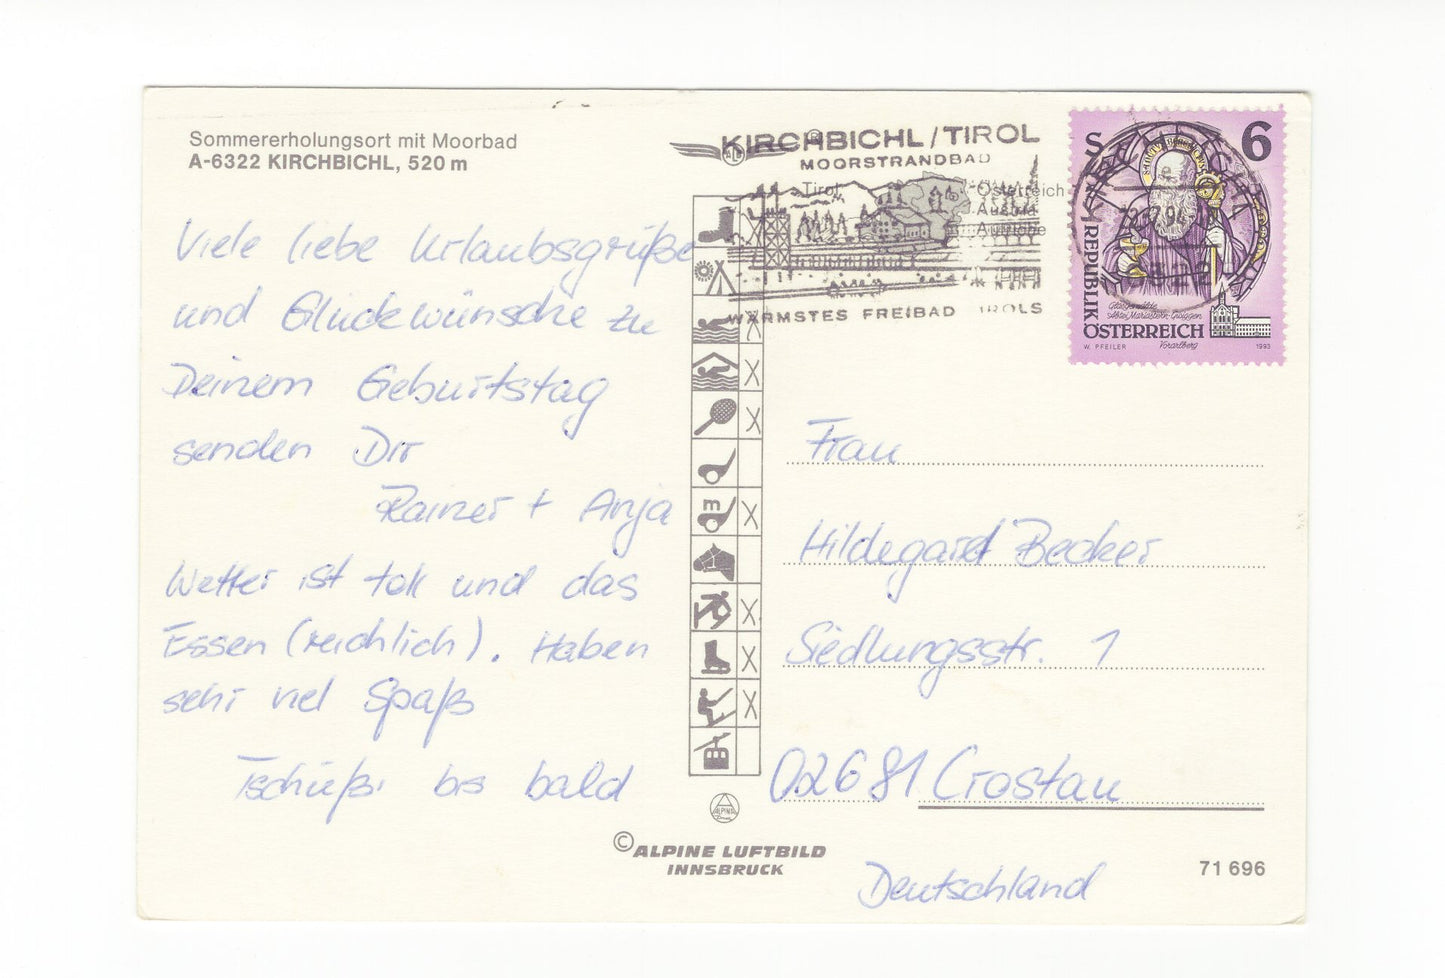 Sommererholungsort mit Moorbad
A-6322 KIRCHBICHL, 520 m
Viele liebe Urlaubsgrüße
und Glückwünsche zu
Deinem Geburtstag
senden Dir
Rainer + Anja
Wetter ist toll und das
Essen (reichlich). Haben
sehr viel Spaß
Tschüß, bis bald
KIRCHBICHL/TIROL
MOORSTRANDBAD
Tirol
Österreich
Austria
Autriche
WÄRMSTES FREIBAD TIROLS
S 6
REPUBLIK
ÖSTERREICH
W. PFEILER
Vorarlberg
1993
Frau
Hildegard Becker
Siedlungsstr. 1
02681 Crostau
Deutschland
ALPINA
© ALPINE LUFTBILD
INNSBRUCK
71 696